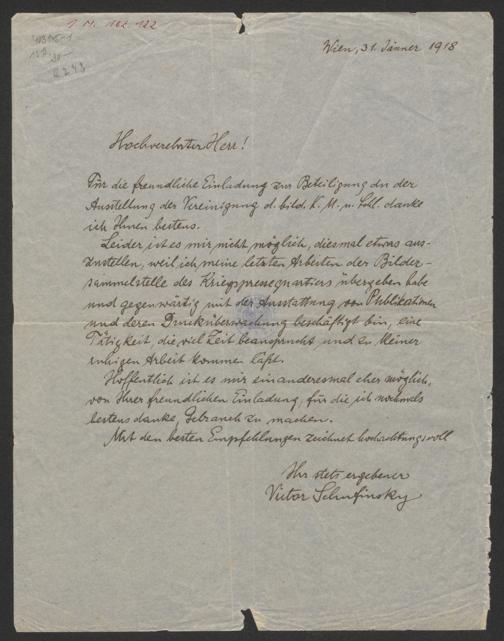 I N. 162.122
Wien, 31. Jänner 1918
Hochverehrter Herr!
Für die freundliche Einladung zur Beteiligung an der
Ausstellung der Vereinigung d. bild. K. M. u. Schl. danke
ich Ihnen bestens.
Leider ist es mir nicht möglich, diesmal etwas aus-
zustellen, weil ich meine letzten Arbeiten der Bilder-
sammelstelle des Kriegspressequartiers übergeben habe
und gegenwärtig mit der Ausstattung von Publikationen
und deren Drucküberwachung beschäftigt bin, eine
Tätigkeit, die viel Zeit beansprucht und zu keiner
ruhigen Arbeit kommen läßt.
Hoffentlich ist es mir ein anderesmal eher möglich,
von Ihrer freundlichen Einladung, für die ich nochmals
bestens danke, Gebrauch zu machen.
Mit den besten Empfehlungen zeichnet hochachtungsvoll
Ihr stets ergebener
Victor Schufinsky